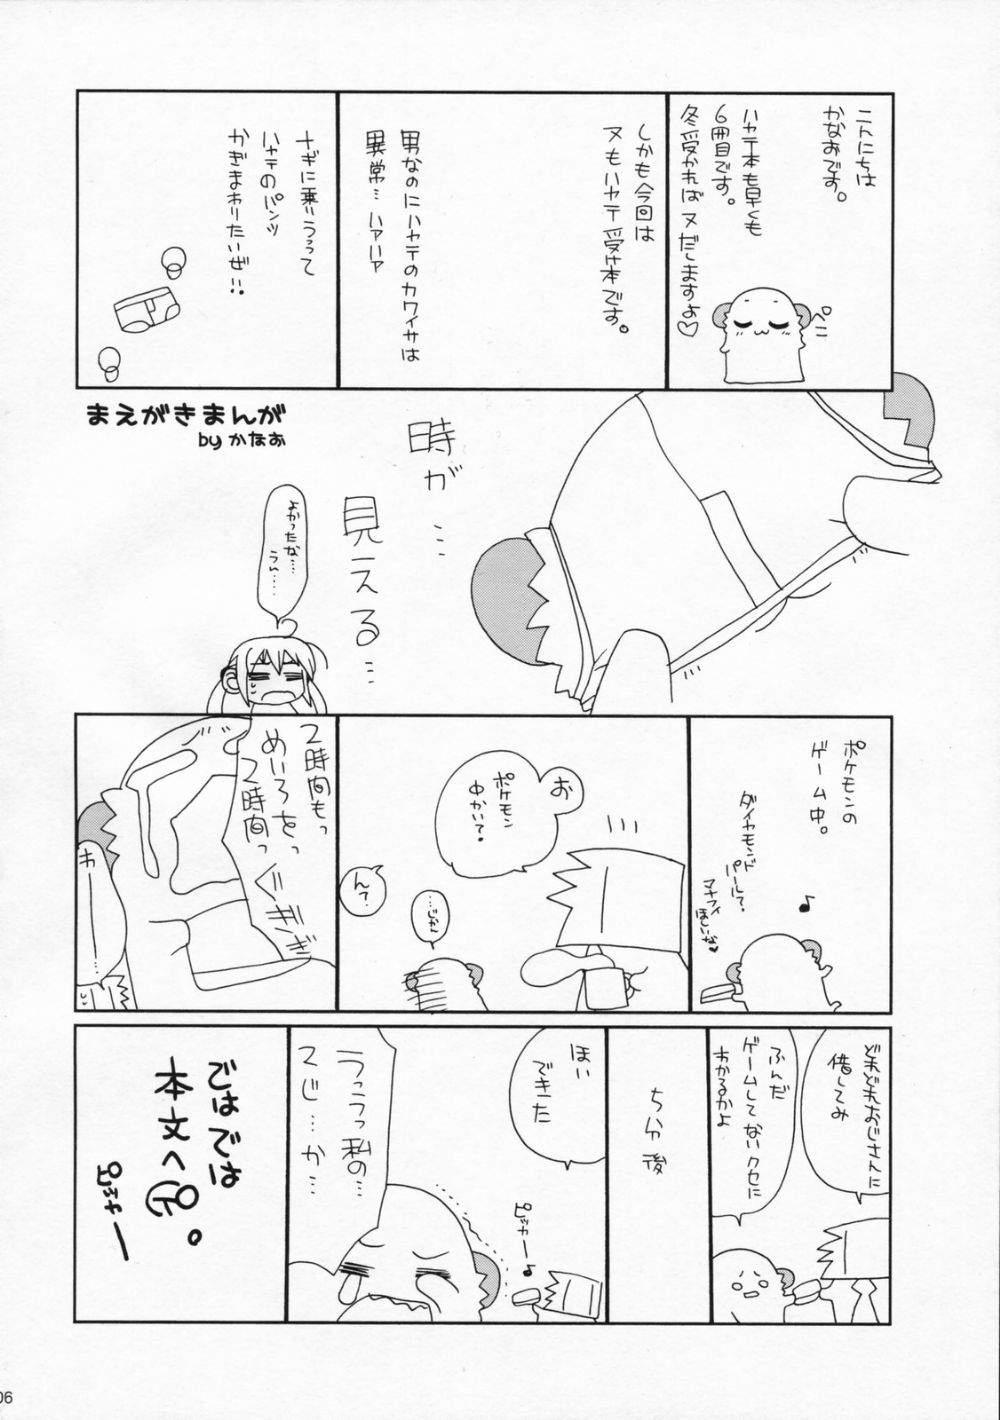 こんにちは
かなおです。
ハヤテ本も早くも
6冊目です。
冬受かればヌだしますよ♡
ペこ
しかも今回は
ヌもハヤテ受け本です。
男なのにハヤテのカワイサは
異常…ハァハァ
ナギに乗りうつって
ハヤテのパンツ
かぎまわりたいぜ!!
まえがきまんが
by かなお
時が…
見える…
よかったな…
うん……
ポケモンの
ゲーム中。
ダイヤモンド
パールして。
マナフィ
ほしいな♥
♪
お
ポケモン
中かいて?
…じかん
んで?
2時間もっ
めいろをっ
2時間っ
ぐぎぎぎ
わー…
どれどれおじさんに
借してみ
ふんだ
ゲームしてないクセに
わかるかよ
5分後
ほい
できた
ピッカー♪
うっうっ私の…
スじ…か…
ではでは
本文へGO。